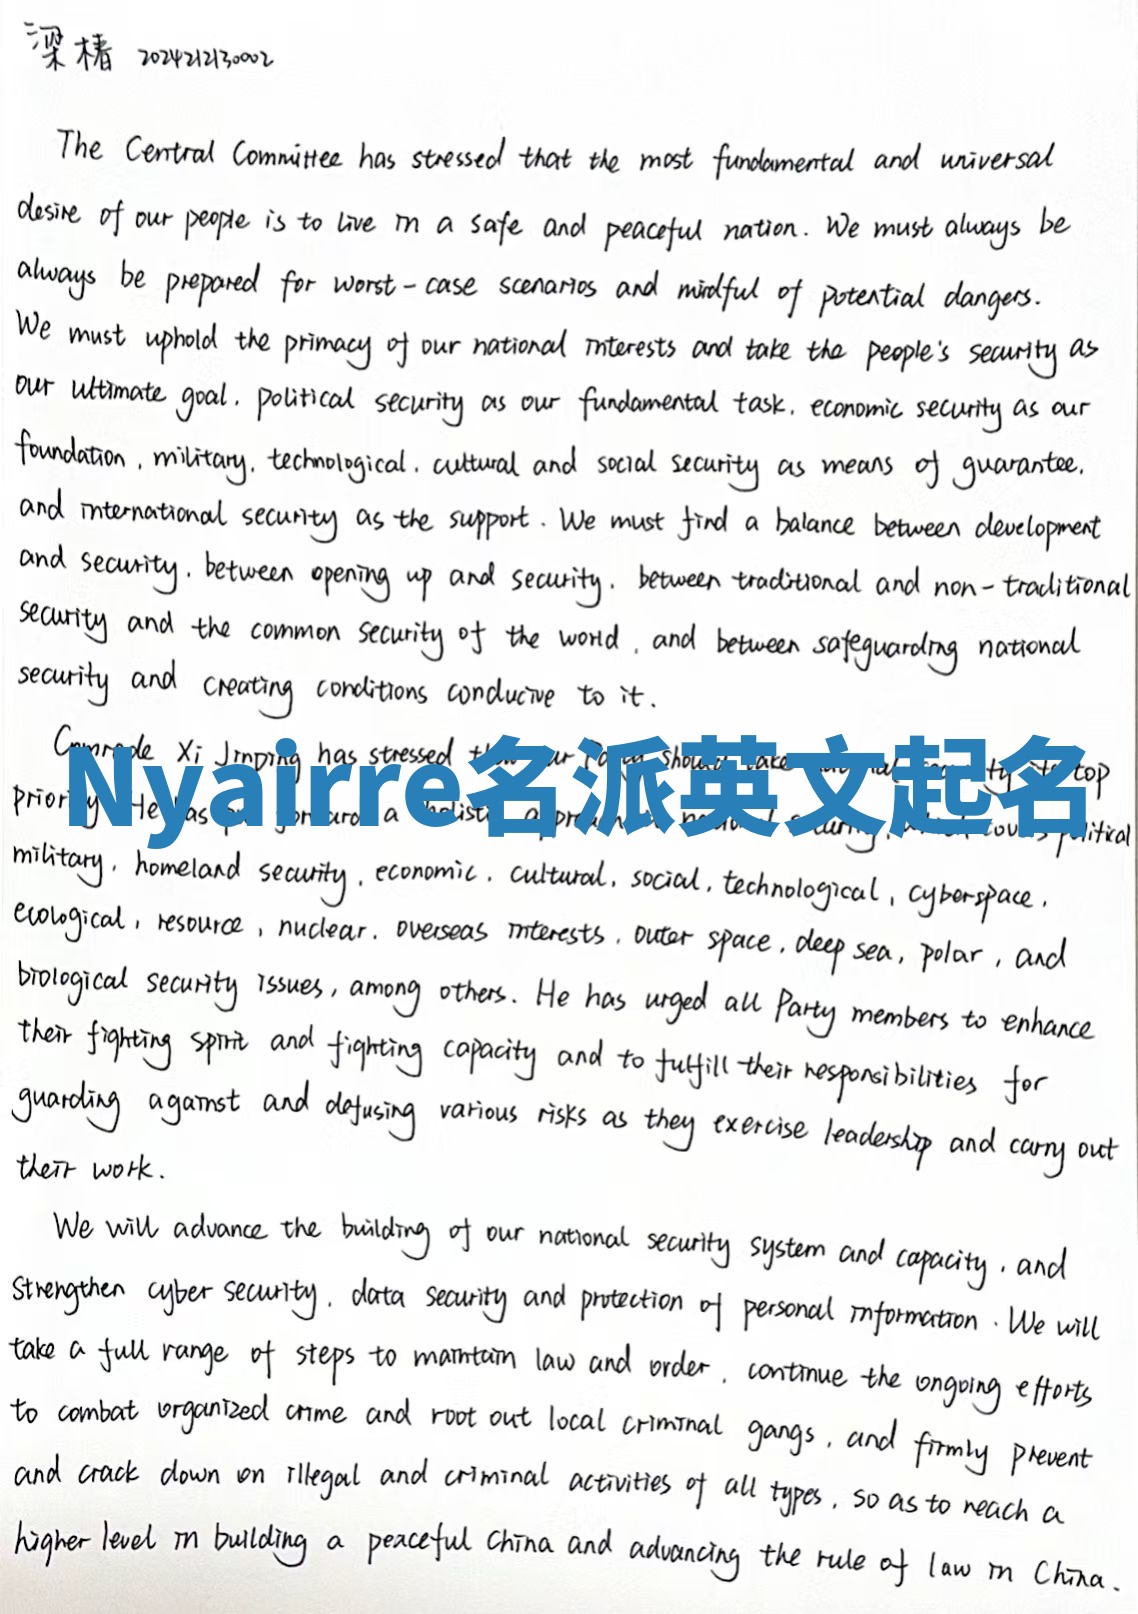 梁椿 2024212130002
The Central Committee has stressed that the most fundamental and universal
desire of our people is to live in a safe and peaceful nation. We must always be
always be prepared for worst-case scenarios and mindful of potential dangers.
We must uphold the primacy of our national interests and take the people's security as
our ultimate goal, political security as our fundamental task, economic security as our
foundation, military, technological, cultural and social security as means of guarantee,
and international security as the support. We must find a balance between development
and security, between opening up and security, between traditional and non-traditional
security and the common security of the world, and between safeguarding national
security and creating conditions conducive to it.
Comrade Xi Jinping has stressed should take top
Nyairre名派英文起名
priority He has a political
military, homeland security, economic, cultural, social, technological, cyberspace,
ecological, resource, nuclear, overseas interests, outer space, deep sea, polar, and
biological security issues, among others. He has urged all Party members to enhance
their fighting spirit and fighting capacity and to fulfill their responsibilities for
guarding against and defusing various risks as they exercise leadership and carry out
their work.
We will advance the building of our national security system and capacity, and
strengthen cyber security, data security and protection of personal information. We will
take a full range of steps to maintain law and order, continue the ongoing efforts
to combat organized crime and root out local criminal gangs, and firmly prevent
and crack down on illegal and criminal activities of all types, so as to reach a
higher level in building a peaceful China and advancing the rule of law in China.